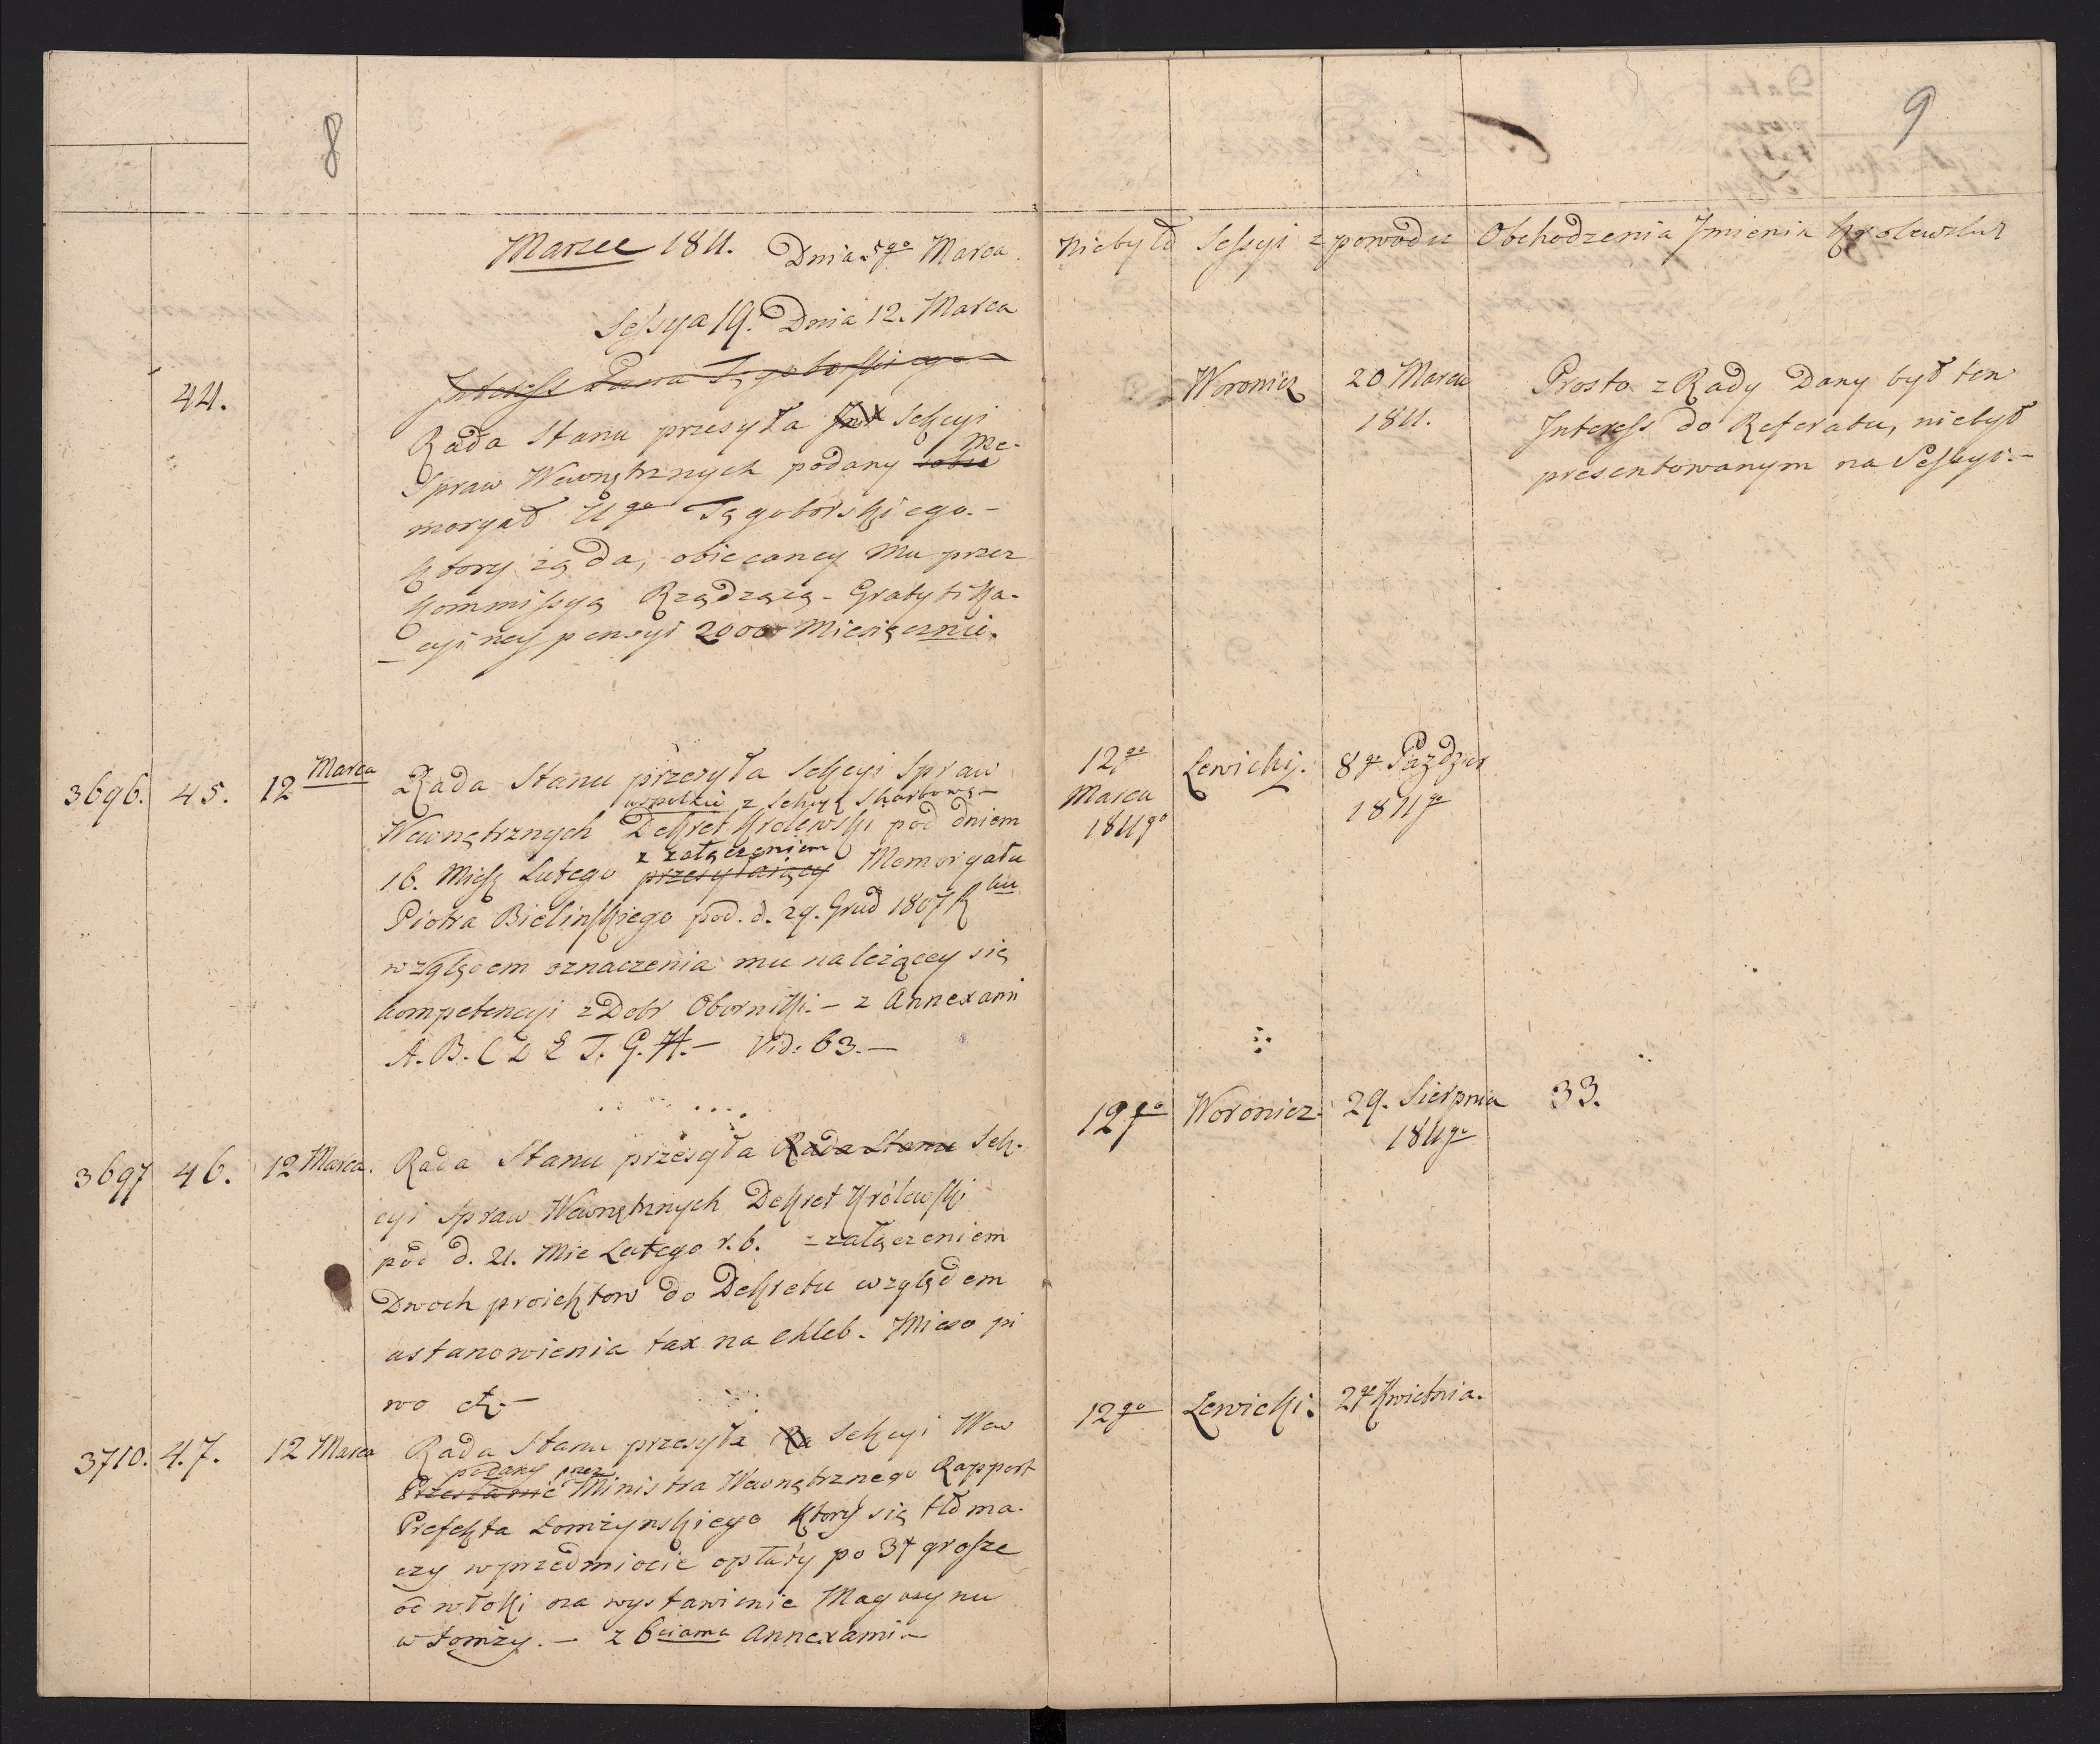 8
9
Marzec 1811. Dnia 5go Marca Niebyło Sessyi z powodu Obchodzenia Jmienia
Sessya 19. Dnia 12. Marca
Interess Pana Tęgoborskiego
44.
Rada Stanu przesyła Sekcyi
Spraw Wewnętrznych podany Me-
moryał Ugo Tęgoborskiego.-
ktory żąda, obiecaney Mu przez
Kommissyą Rządzącą - Gratyfika-
cyiney pensyi 2000 Miesięcznie.
Woronicz
20 Marca
1811.
Prosto z Rady Dany był ten
Interess do Referatu, niebył
presentowanym na Sessyi.-
3696. 45. 12 Marca
Rada Stanu przesyła Sekcyi Spraw
wspolnie z Sekcyą Skarbową -
Wewnętrznych Dekret Krolewski pod dniem
z załączeniem
16. Mies Lutego przesyłaiący Memoryału
Piotra Bielinskiego pod. d. 29. Grud 1807 R
względem oznaczenia mu należącey się
kompetencyi z Dobr Obornicki. - z Annexami
A. B. C D E F. G. H. - Vid: 63. -
12go
Marca
1811go
Lewicki.
8go Paździer
1811go
3697 46. 12 Marca.
Rada Stanu przesyła Rada Stanu Sek-
cyi Spraw Wewnętrznych Dekret Królewski
pod d. 21. Mie Lutego r. b. z załączeniem
Dwoch proiektow do Dekretu względem
ustanowienia tax na chleb. Mieso pi
wo etc. -
12go
Woronicz.
29. Sierpnia
1811go
33.
3710. 47. 12 Marca
Rada Stanu przesyła Ra Sekcyi Wew
podany przez
Przesłanie Ministra Wewnętrznego Rapport
Prefekta Łomżynskiego ktory się tłoma-
czy w przedmiocie opłaty po 3 grosze
od włoki na wystawienie Magazynu
w Łomży. - z 6ciama Annexami -
12go
Lewicki.
2go Kwietnia.